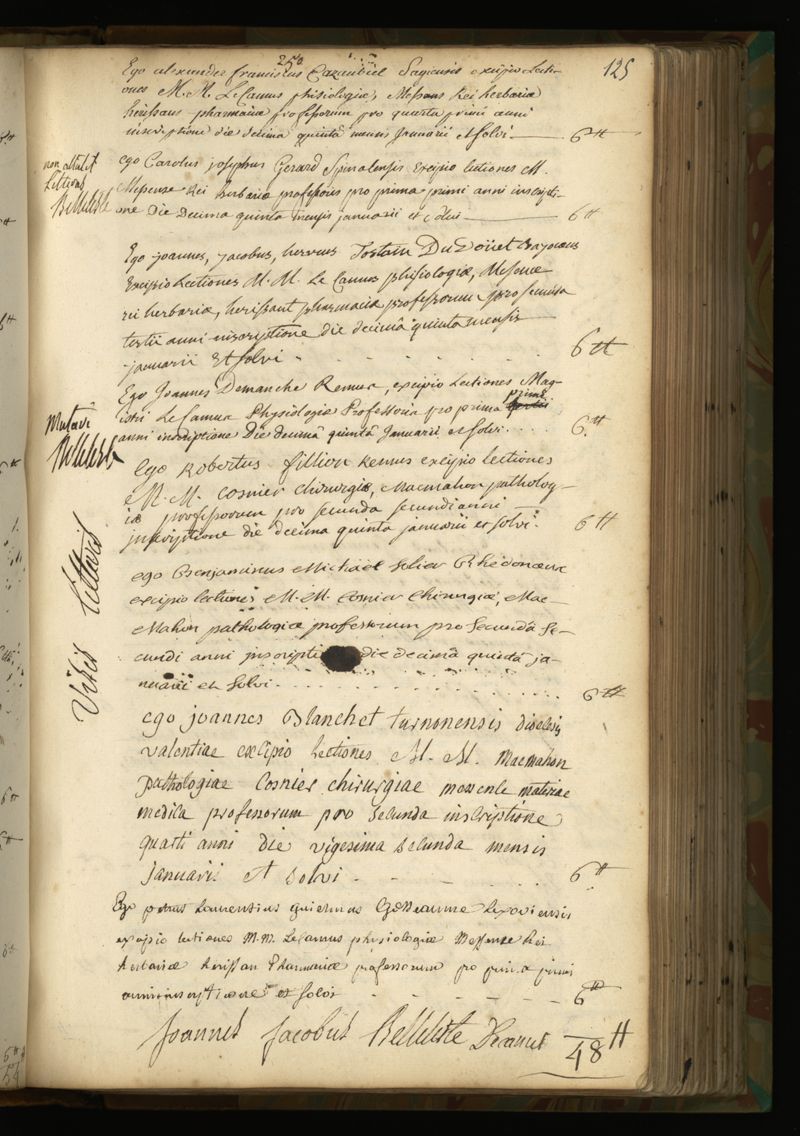 125
Ego alexander franciscus Cazaubiel Sagiensis excipio Lecti-
ones M. M. LeCamus phisiologiæ, Messens Rei herbariæ
herissant pharmaciæ professorum pro quarta primi anni
inscriptione die decima quinta mensis Januarii et solvi 6 ₶
non attulit
Litteras
Belleteste
ego Carolus josephus Gerard Spinalensis Excipio lectiones M.
Messence Rei herbariæ professoris pro prima primi anni inscripti-
one Die Decima quinta mensis januarii et solvi 6 ₶
Ego joannes, jacobus, herveus Tostain DuDoüet Bajocæus
Excipio Lectiones M. M. Le Camus phisiologiæ, Mesence
rei herbariæ, herissant pharmaciæ professorum pro secunda
tertii anni inscriptione die decimâ quinta mensis
januarii Et solvi 6 ₶
Ego Joannes Demanche Remus, excipio Lectiones Mag-
istri Le Camus Physiologiæ Professoris pro prima primi
anni inscriptione Die decimâ quintâ Januarii et solvi 6 ₶
Belleteste
Ego Robertus fillion Remus excipio lectiones
M. M. Cosnier chirurgiæ, Macmahon patholog-
iæ professorum pro secunda secundi anni
inscriptione die decima quinta januarii et solvi. 6 ₶
Vidit litteras
ego Benjaminus Michaël Solier Rhedonæus
excipio lectiones M. M. Cosnier Chirurgiæ, Mac-
Mahon pathologiæ professorum pro Secundâ Se-
cundi anni inscripti die decimâ quintâ ja-
nuarii et Solvi 6 ₶
ego joannes Blanchet turnonensis diœcesis
valentiae excipio lectiones M. M. Macmahon
pathologiae Cosnier chirurgiae messence materiae
medica professorum pro secunda inscriptione
quarti anni die vigesima secunda mensis
januarii et solvi 6 ₶
Ego petrus Laurentius guielmus Gosseaume Lexoviensis
excipio lectiones M. M. LeCamus physiologiæ Messense Rei
herbariæ herissan Pharmaciæ professorum pro prima primi
anni inscriptione et solvi 6 ₶
Joannes Jacobus Belleteste Decanus 48 ₶